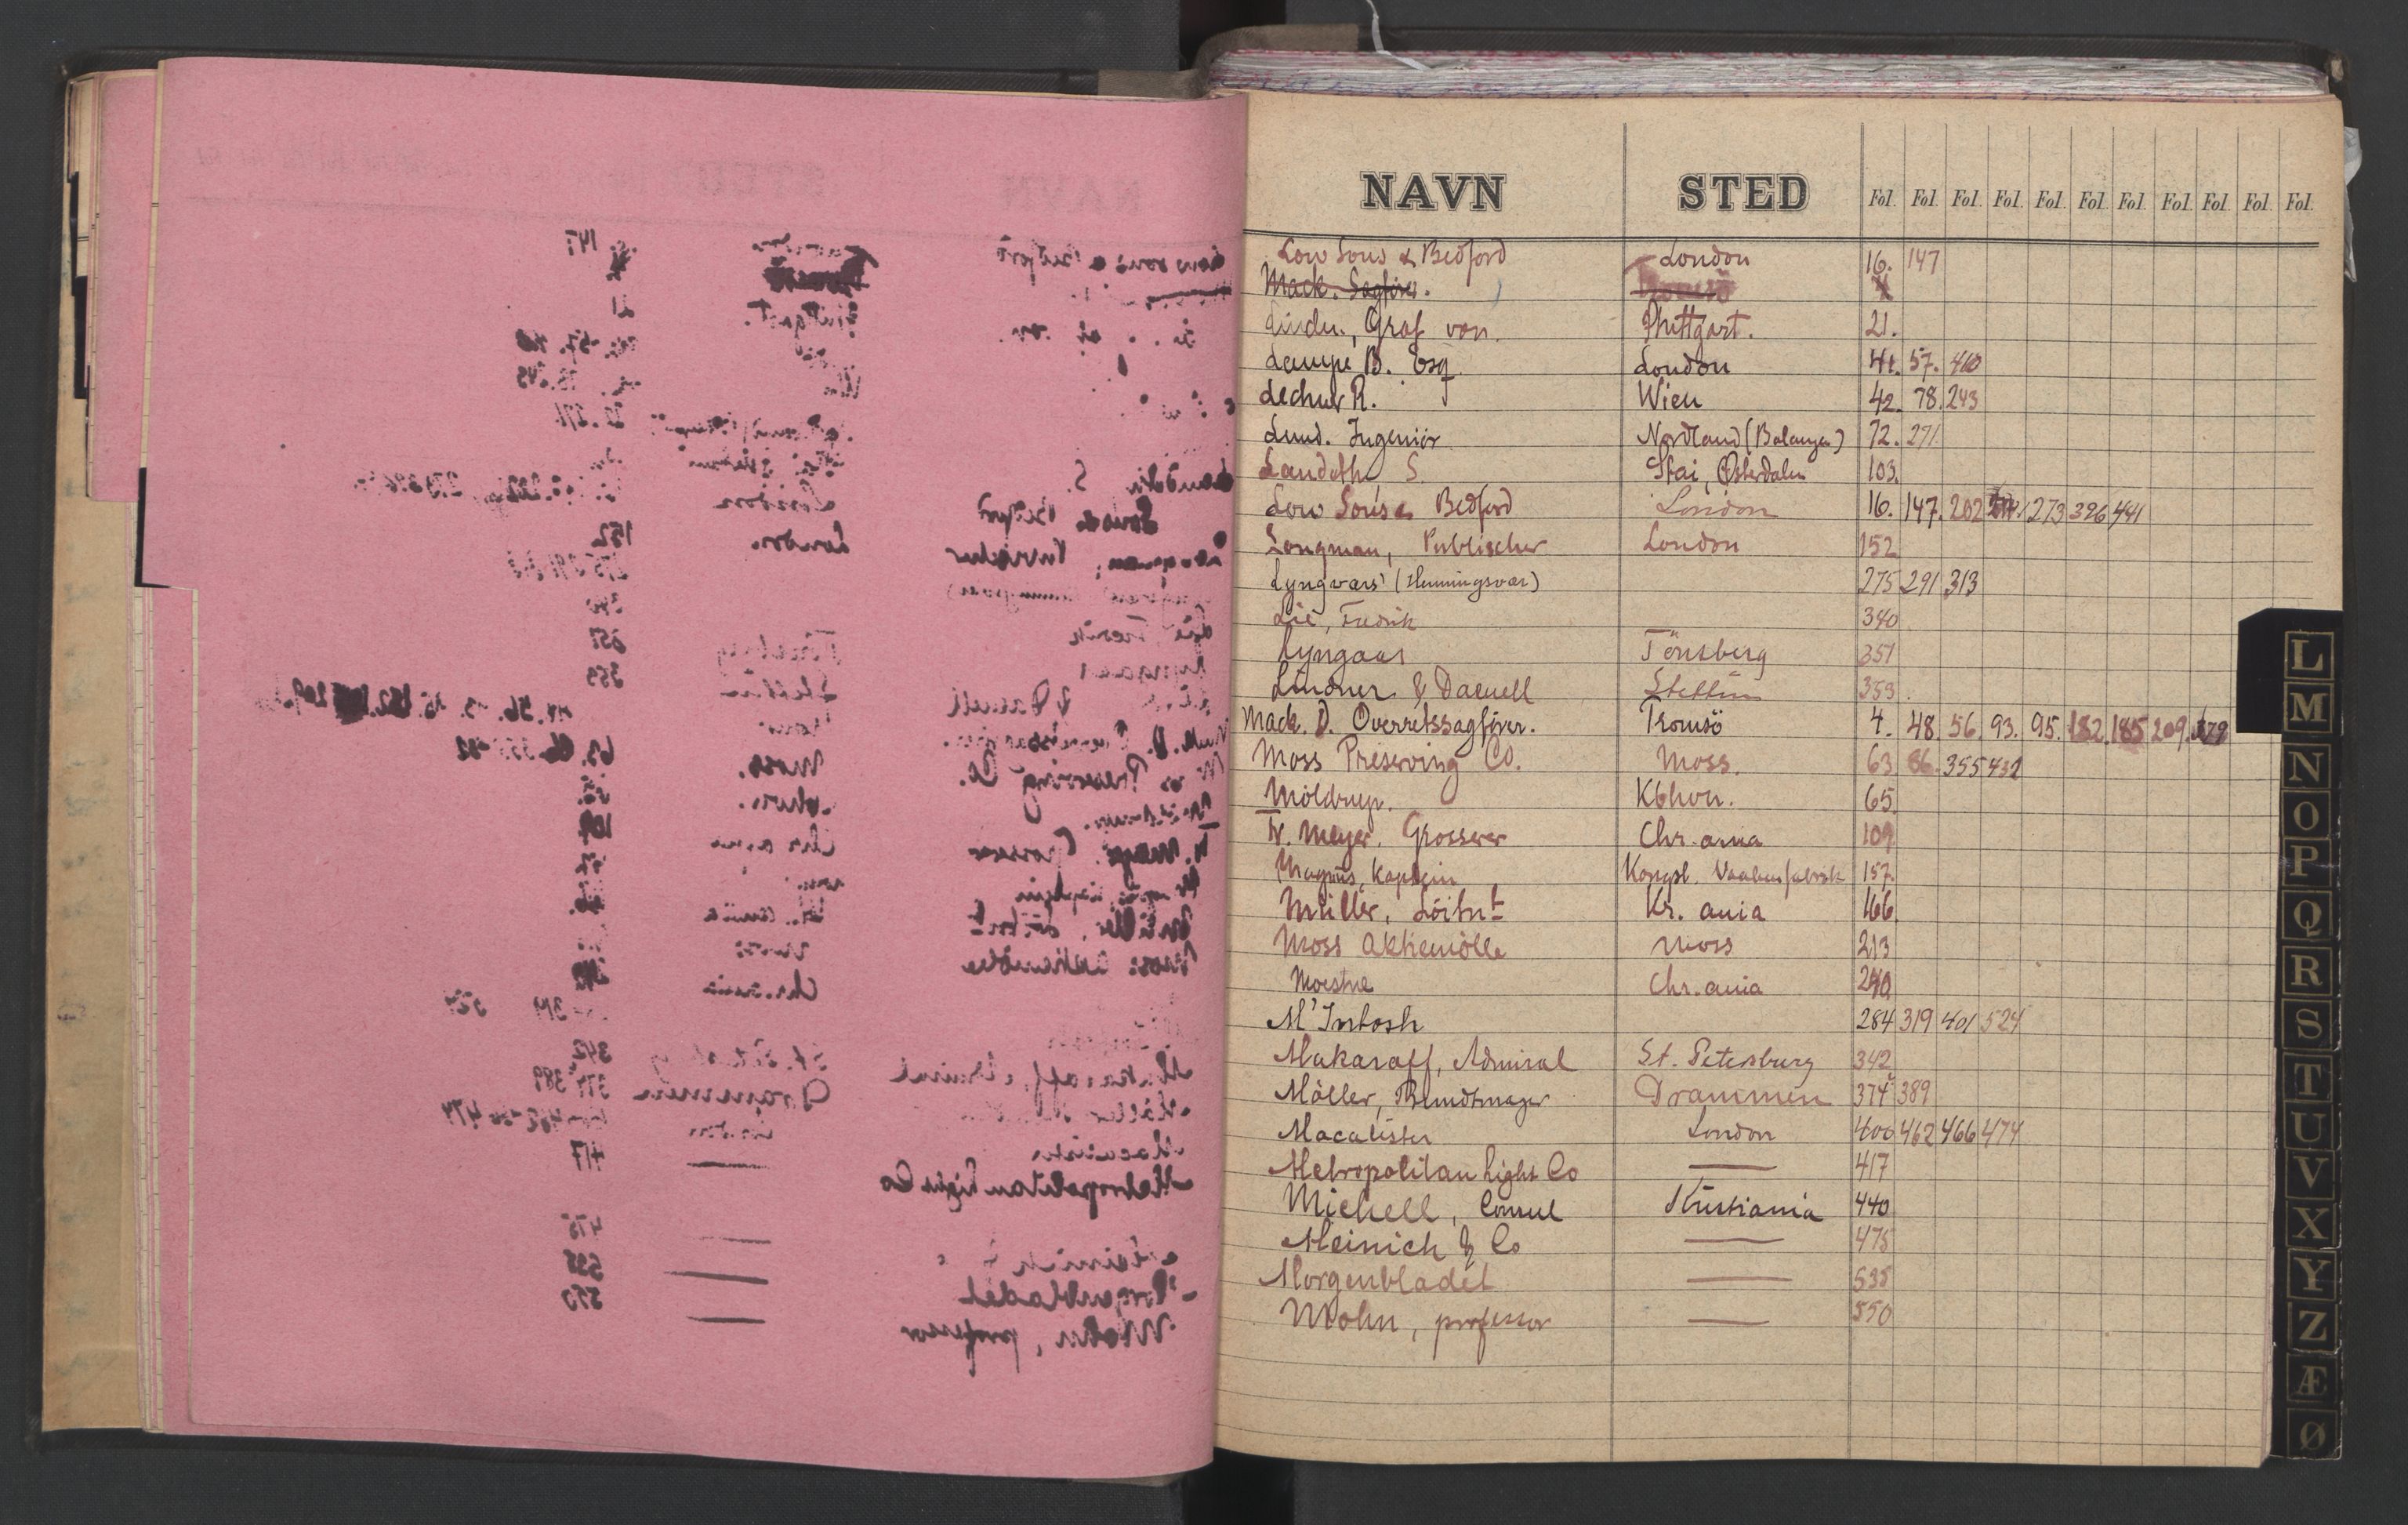 NAVN STED Fol. Fol. Fol. Fol. Fol. Fol. Fol. Fol. Fol. Fol. Fol.
Low Sons & Bedford London 16. 147
Mack. Sagförer.
Graf von. Stuttgart. 21.
Lampe B. Esq London 41. 57. 460
Lechner R. Wien 42. 78. 243
Lund. Ingeniör Nordland (Balangen) 72. 271.
Landoth S. Stai, Østerdalen 103.
Low Sons & Bedford London 16. 147. 202 273 396 441
Longman, Publischer London 152
Lyngvær (Henningsvær) 275 291 313
Lie, Fredrik 340
Lyngaas Tönsberg 351
Lindner & Daenell Stettin 353
Mack. D. Overretssagförer. Tromsö 4. 48. 56 93. 95. 182. 185 209. 179
Moss Preserving Co. Moss. 63 86. 355 432
Möldrup. Kbhvn. 65.
Fr. Meyer. Grosserer Chr. ania 109
Magnus, Kaptein Kongsb. Vaabenfabrik 157.
Müller, Löitnt Kr. ania 166
Moss Aktiemölle Moss 213
Moestue Chr. ania 240
M'Intosh 284 319 401 524
Makaroff, Admiral St. Petersburg 342
Möller, Bundtmager Drammen 374 389
Macalister London 400 462 466 474
Metropolitan Light Co — 417
Michell, Consul Kristiania 440
Meinich & Co — 475
Morgenbladet — 535
Mohn, professor — 550
L
M
N
O
P
Q
R
S
T
U
V
X
Y
Z
Æ
Ø